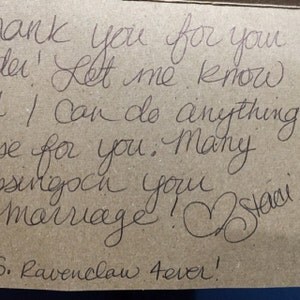 hank you for your
der! Let me know
I can do anything
se for you. Many
ssingson your
marriage! ♡Staci
S. Ravenclaw 4ever!